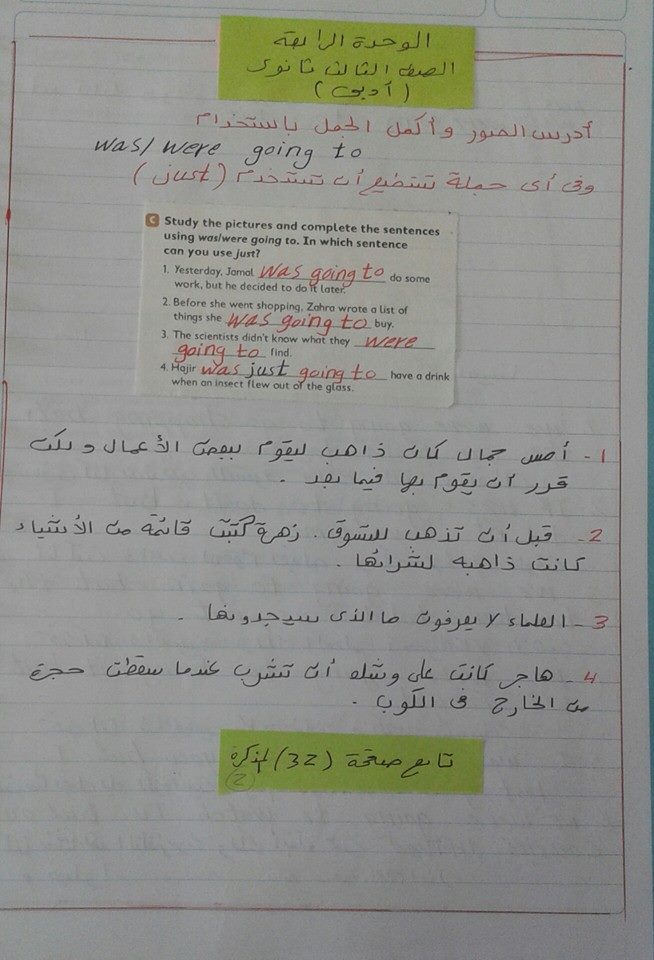 الوحدة الرابعة
الصف الثالث ثانوى
( أدبى )
أدرس الصور وأكمل الجمل باستخدام
was/were going to
وفى أى جملة تستطيع أن تستخدم (just)
C Study the pictures and complete the sentences
using was/were going to. In which sentence
can you use just?
1. Yesterday, Jamal was going to do some
work, but he decided to do it later.
2. Before she went shopping, Zahra wrote a list of
things she was going to buy.
3. The scientists didn't know what they were
going to find.
4. Hajir was just going to have a drink
when an insect flew out of the glass.
1- أمس جمال كان ذاهب ليقوم ببعض الأعمال ولكن
قرر أن يقوم بها فيما بعد .
2- قبل أن تذهب للتسوق . زهرة كتبت قائمة من الأشياء
كانت ذاهبه لشرائها .
3- العلماء لا يعرفون ما الذى سيجدونها .
4- هاجر كانت على وشك أن تشرب عندما سقطت حجرة
من الخارج فى الكوب .
تابع صفحة (32) المذكرة
(2)